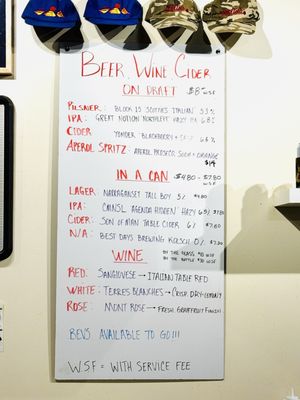 BEER, WINE CIDER
ON DRAFT $8 WSF
PILSNER: BLOCK 15 SULLY'S ITALIAN 5.3%
IPA: GREAT NOTION NORTHLEFT HAZY IPA 6.8%
CIDER YONDER BLACKBERRY + 6.6%
APEROL SPRITZ - APEROL PROSECCO SODA + ORANGE
$14
IN A CAN $4.80 - $7.80
WSF
LAGER NARRAGANSET TALL BOY 5% $4.80
IPA: AGENDA HIDDEN HAZY 6.5% $7.80
CIDER: SON OF MAN TABLE CIDER 6% $7.80
N/A: BEST DAYS BREWING KOLSCH 0% $7.20
WINE BY THE GLASS $10 WSF
BY THE BOTTLE $30 WSF
RED: SANGIOVESE → ITALIAN TABLE RED
WHITE: TERRES BLANCHES → CRISP, DRY + LEMONY
ROSE: MONT ROSE → FRESH GRAPEFRUIT FINISH
BEVS AVAILABLE TO GO!!!
W.S.F = WITH SERVICE FEE